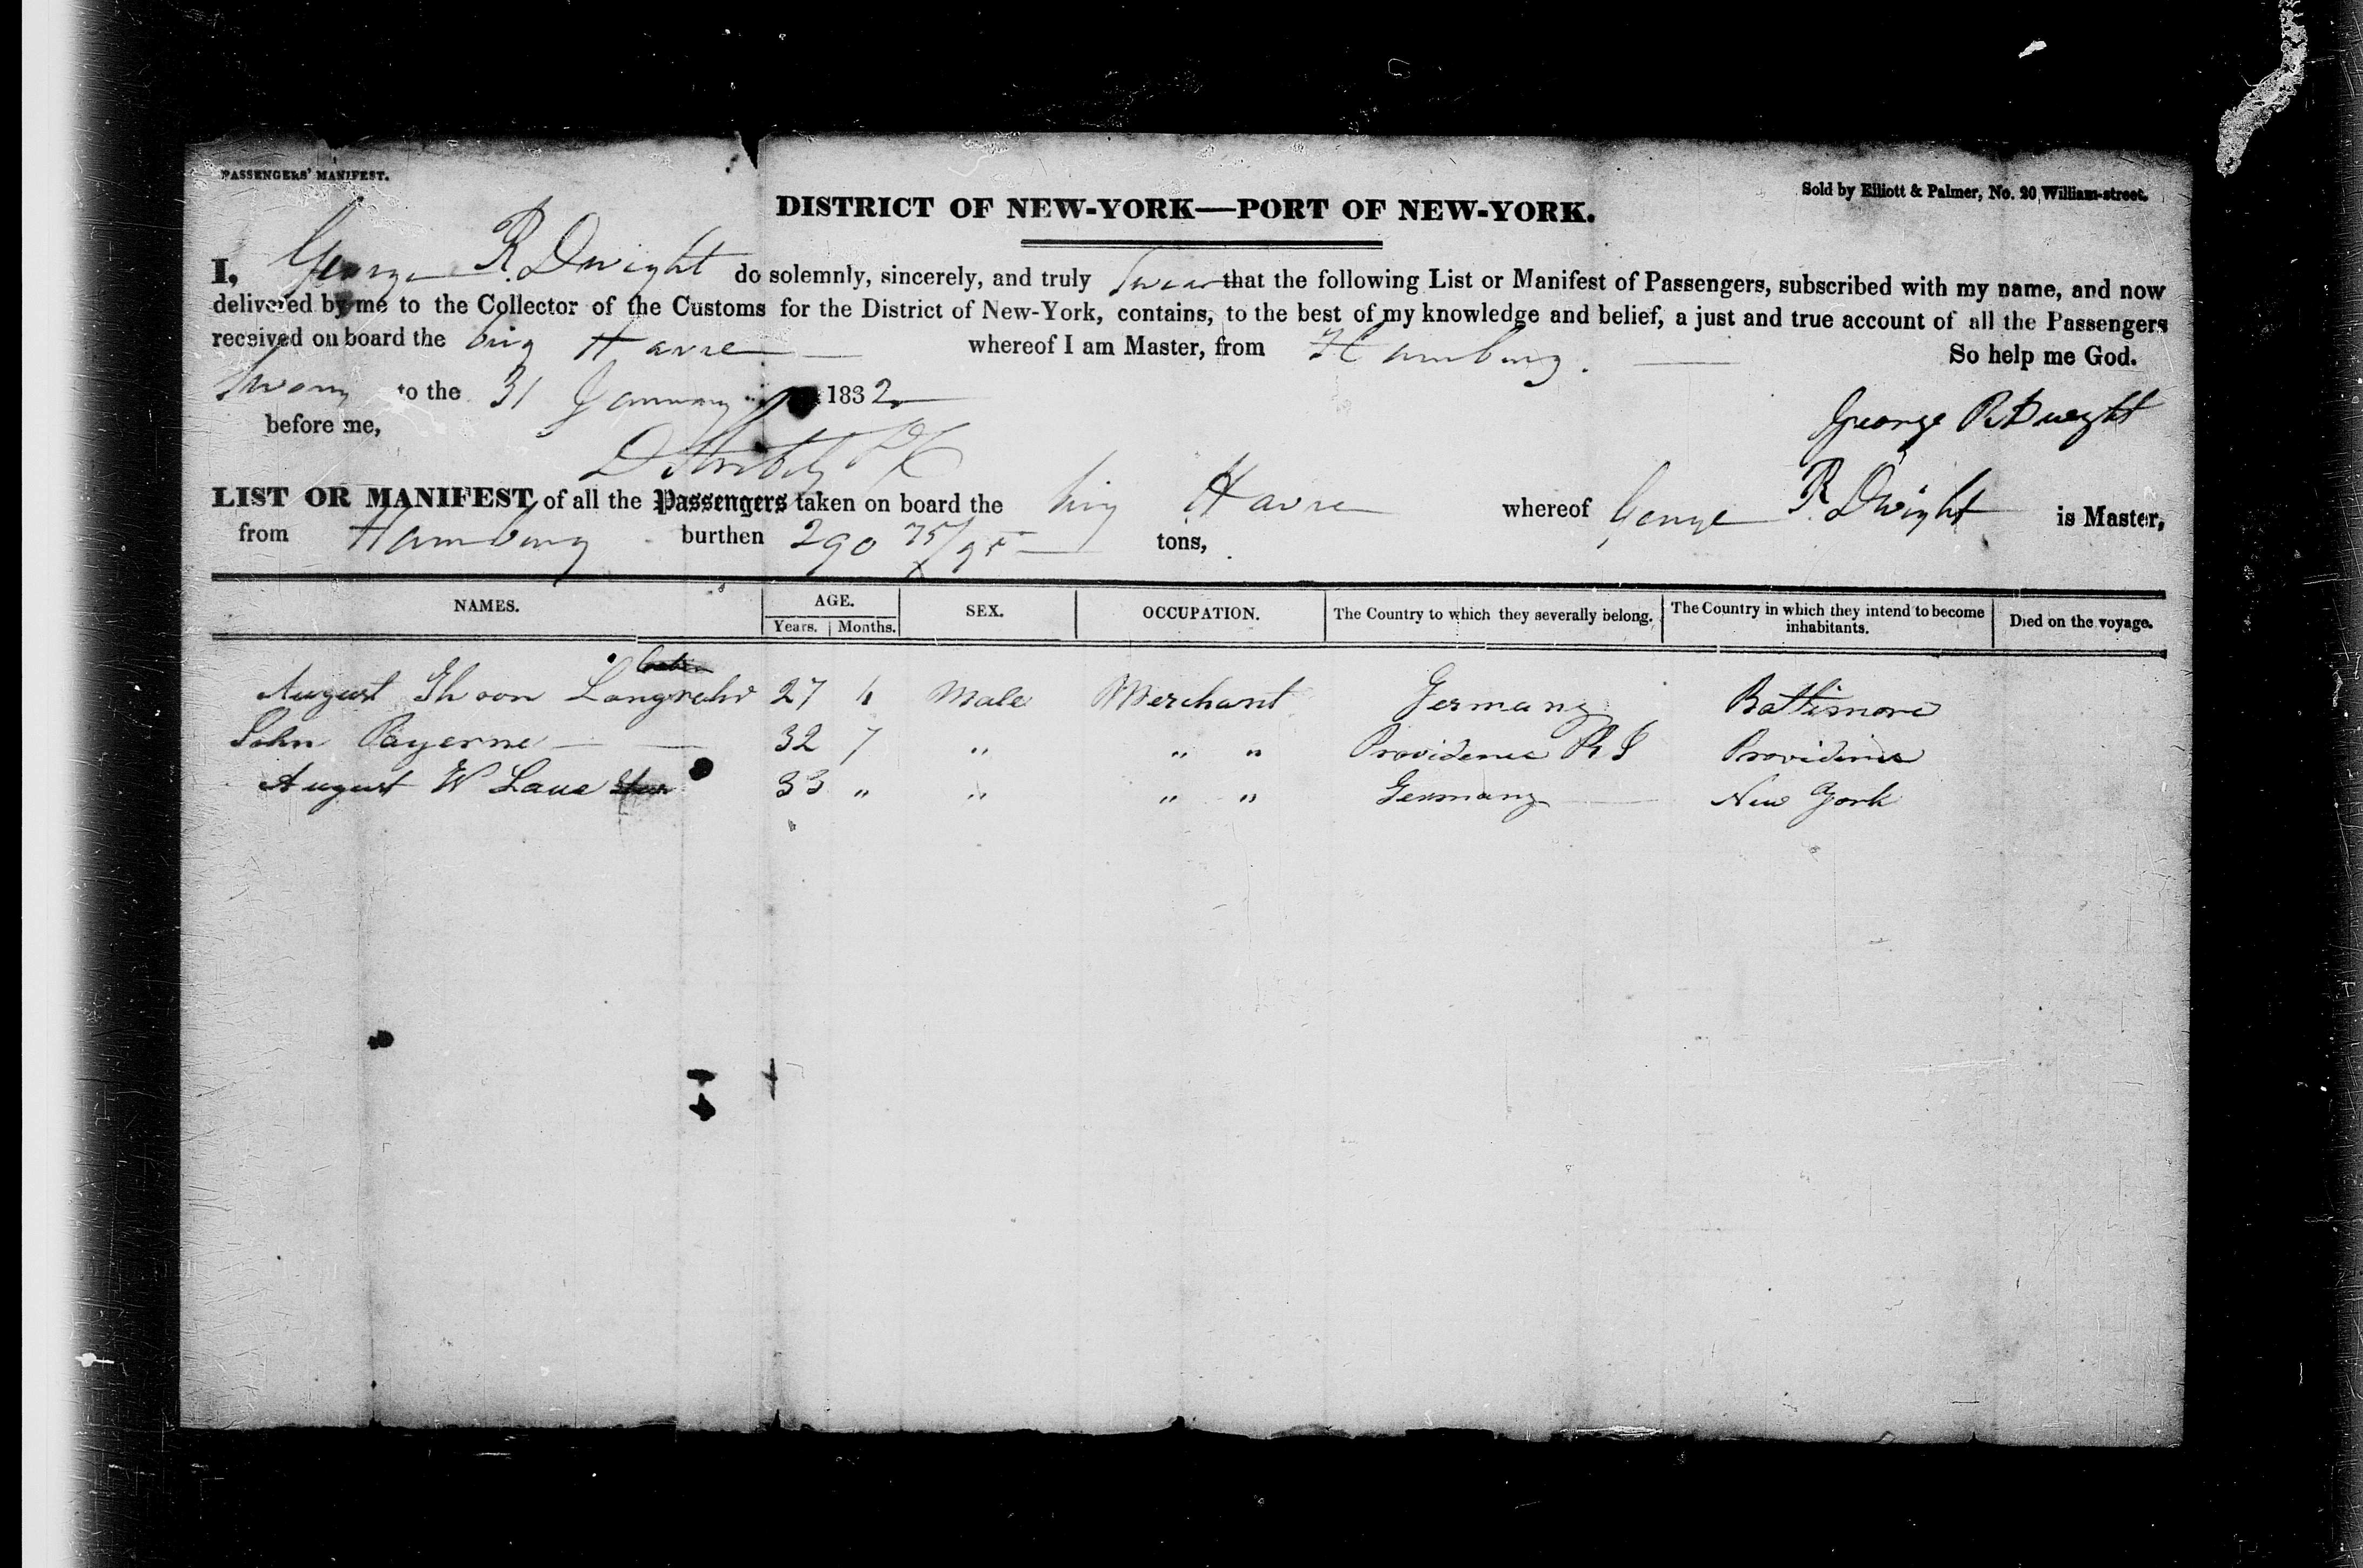 PASSENGERS' MANIFEST.
Sold by Elliott & Palmer, No. 20, William-street.
DISTRICT OF NEW-YORK—PORT OF NEW-YORK.
I, George R. Dwight do solemnly, sincerely, and truly Swear that the following List or Manifest of Passengers, subscribed with my name, and now
delivered by me to the Collector of the Customs for the District of New-York, contains, to the best of my knowledge and belief, a just and true account of all the Passengers
received on board the brig Havre — whereof I am Master, from Hamburg. — So help me God.
Sworn to the 31 January 1832
before me,
George R Dwight
LIST OR MANIFEST of all the Passengers taken on board the brig Havre whereof George R. Dwight is Master,
from Hamburg burthen 290 75/95 — tons,
NAMES. AGE. SEX. OCCUPATION. The Country to which they severally belong. The Country in which they intend to become inhabitants. Died on the voyage.
Years. Months.
August Langrehr 27 Male Merchant Germany Baltimore
John Payerne — — 32 7 " " " Providence R I Providence
August W Laue 33 " " " " Germany — New York